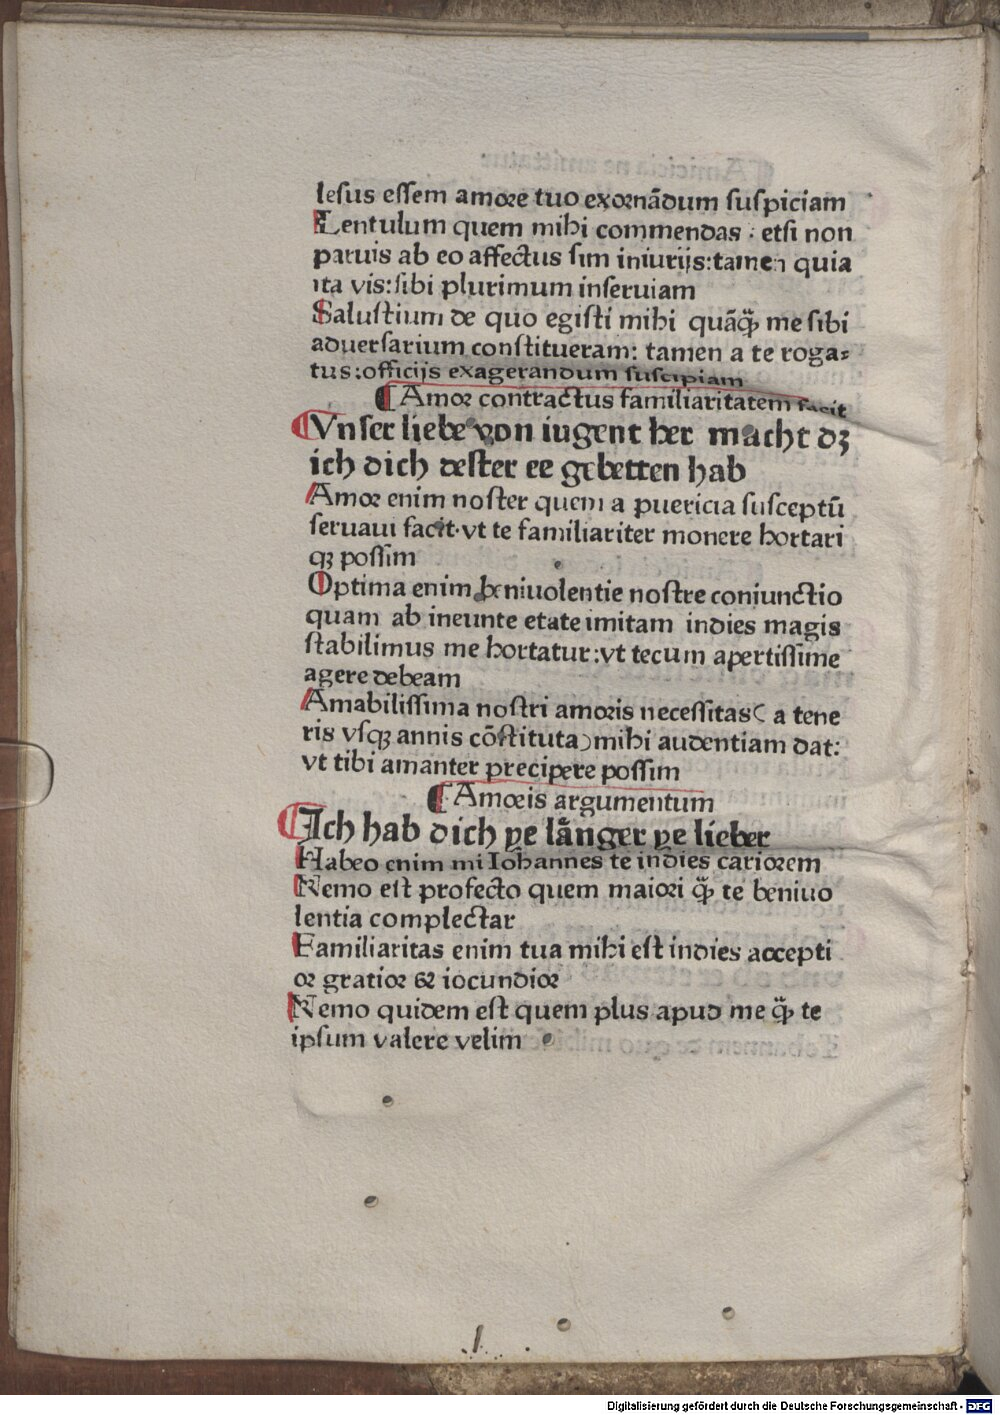 lesus essem amore tuo exornãdum suspiciam
Lentulum quem mihi commendas : etsi non
paruis ab eo affectus sim iniurijs:tamen quia
ita vis:sibi plurimum inseruiam
Salustium de quo egisti mihi quãq̃ me sibi
aduersarium constitueram: tamen a te roga⸗
tus:officijs exagerandum suscipiam
¶ Amor contractus familiaritatem facit
¶ Vnser liebe von iugent her macht dꝫ
ich dich dester ee gebetten hab
Amor enim noster quem a puericia susceptũ
seruaui facit·vt te familiariter monere hortari
qꝫ possim
Optima enim beniuolentie nostre coniunctio
quam ab ineunte etate imitam indies magis
stabilimus me hortatur:vt tecum apertissime
agere debeam
Amabilissima nostri amoris necessitas( a tene
ris vsqꝫ annis cõstituta)mihi audentiam dat:
vt tibi amanter precipere possim
¶ Amoris argumentum
¶ Ich hab dich ye lãnger ye lieber
Habeo enim mi Iohannes te indies cariorem
Nemo est profecto quem maiori q̃ te beniuo
lentia complectar
Familiaritas enim tua mihi est indies accepti
or gratior et iocundior
Nemo quidem est quem plus apud me q̃ te
ipsum valere velim
Digitalisierung gefördert durch die Deutsche Forschungsgemeinschaft - DFG